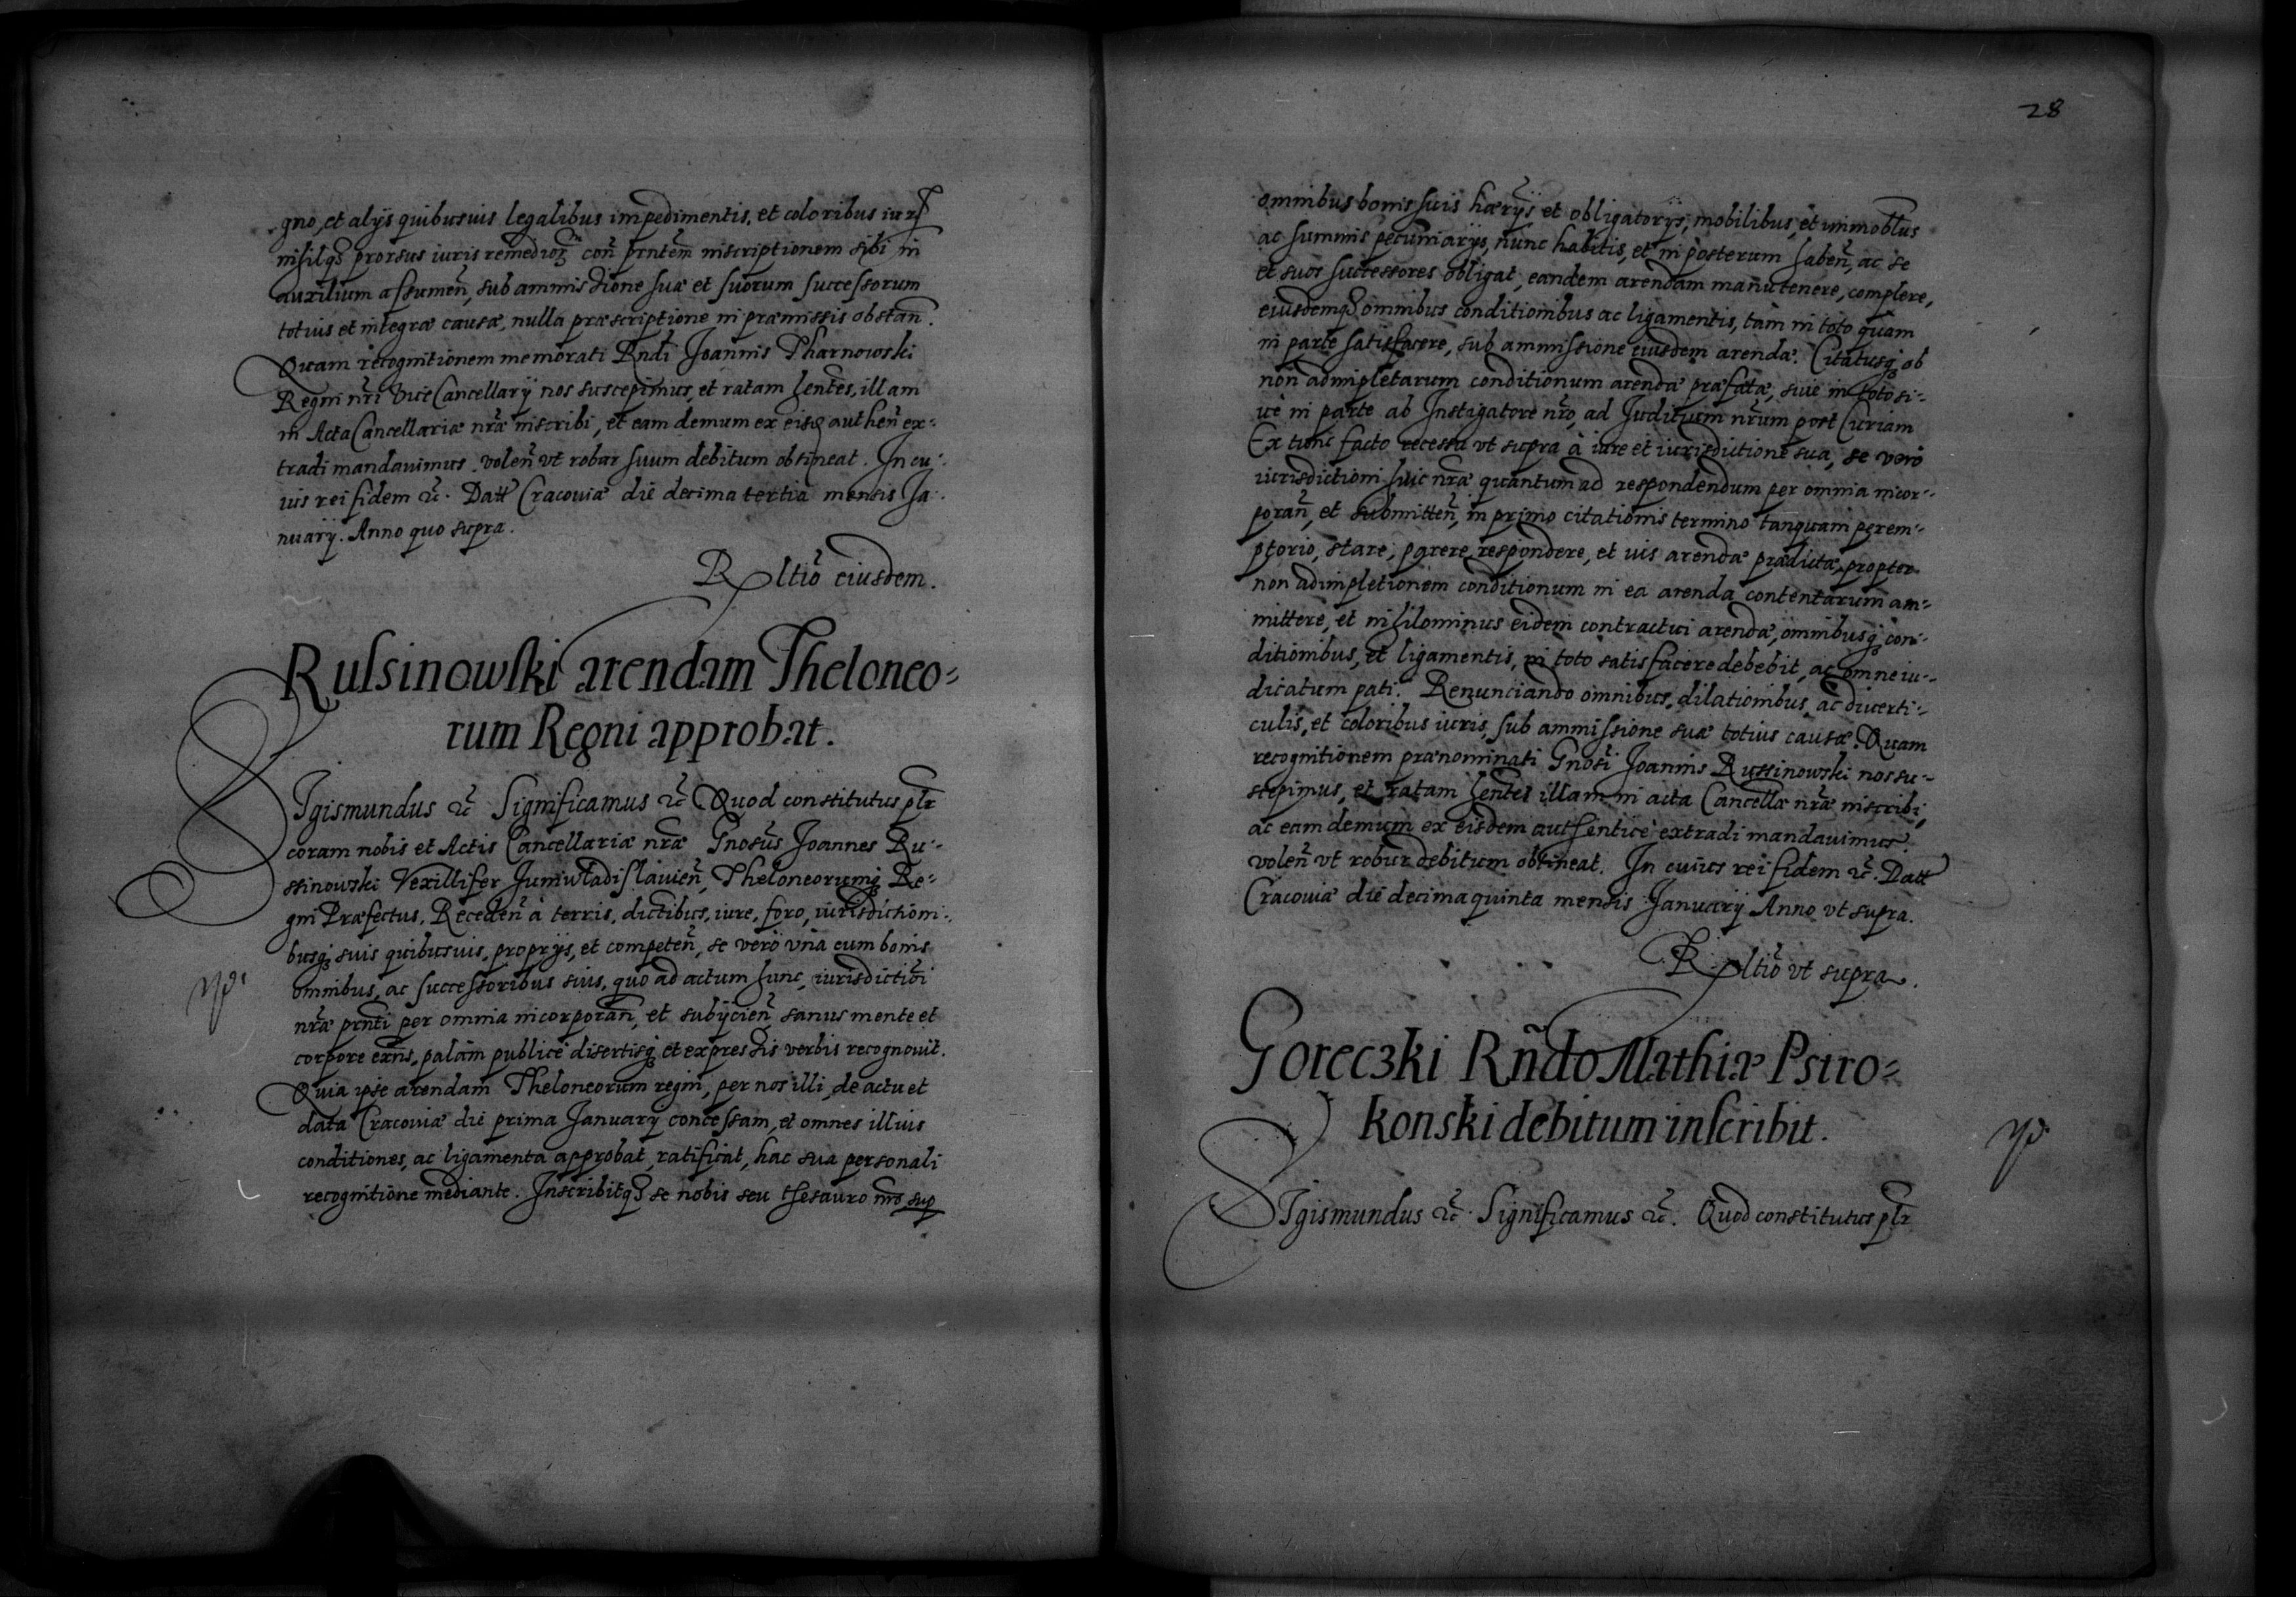 gno, et alijs quibusuis legalibus impedimentis, et coloribus iur
nihilq3 prorsus iuris remedior con̄ prntem̄ inscriptionem sibi in
auxilium assumen̄, sub ammissione suæ et suorum successorum
totius et integræ causæ, nulla præscriptione in præmissis obstan̄.
Quam recognitionem memorati Rndi Joannis Tharnowski
Regni nri ViceCancellarij nos suscepimus, et ratam hentes, illam
in Acta Cancellariæ nræ inscribi, et eam demum ex eisd authen̄ ex-
tradi mandauimus. volen̄ vt robar suum debitum obtineat. In cu-
ius rei fidem &c. Datt Cracouiæ die decima tertia mensis Ja-
nuarij. Anno quo supra.
Rltio eiusdem.
Russinowski arendam Theloneo=
rum Regni approbat.
SIgismundus &c Significamus &c Quod constitutus plr
coram nobis et Actis Cancellariæ nræ Gnosus Joannes Ru-
ssinowski Vexillifer Juniwladislauien̄, Theloneorumq3 Re-
gni Præfectus. Receden̄ à terris, dictibus, iure, foro, iurisdictioni-
busq3 suis quibusuis, proprijs, et competen̄, se verò vna cum bonis
omnibus, ac successoribus suis, quo ad actum hunc, iurisdictioi
nræ prnti per omnia incorporan̄, et subijcien̄ sanus mente et
corpore exns, palàm publicè disertisq3 et expressis verbis recognouit.
Quia ipse arendam Theloneorum regni, per nos illi, de actu et
data Cracouiæ die prima Januarij concessam, et omnes illius
conditiones, ac ligamenta approbat, ratificat, hac sua personali
recognitione mediante. Inscribitq3 se nobis seu thesauro nro sup
28
omnibus bonis suis hærijs et obligatorijs, mobilibus, et immobilbus
ac summis pecuniarijs, nunc habitis, et in posterum haben̄, ac se
et suos successores obligat, eandem arendam manutenere, complere,
eiusdemq3 omnibus conditionibus ac ligamentis, tàm in toto quàm
in parte satisfacere, sub ammissione eiusdem arendæ. Citatusq3 ob
non admipletarum conditionum arendæ præfatæ, siue in toto si-
uè in parte ab Instigatore nro, ad Juditium nrum post Curiam
Ex tunc facto recessu vt supra à iure et iurisdictione sua, se verò
iurisdictioni huic nræ quantum ad respondendum per omnia incor-
poran̄, et submitten̄, in primo citationis termino tanquam perem-
ptorio, stare, parere, respondere, et uis arendæ prædictæ, propter
non adimpletionem conditionum in ea arenda contentarum am-
mittere, et nihilominus eidem contractui arendæ, omnibusq3 con-
ditionibus, et ligamentis, in toto satisfacere debebit, ac omne iu-
dicatum pati. Renunciando omnibus, dilationibus, ac diuerti-
culis, et coloribus iuris, sub ammissione suæ totius causæ. Quam
recognitionem prænominati Gnosi Joannis Russinowski nos su-
scepimus, et ratam hentes illam in acta Cancellæ nræ inscribi,
ac eam demum ex eisdem authenticè extradi mandauimus.
volen̄ vt robur debitum obtineat. In cuius rei fidem &c. Datt
Cracouiæ die decima quinta mensis Januarij Anno vt supra.
Rltio vt supra.
Goreczki Rn̄do Mathiæ Pstro=
konski debitum inscribit.
SIgismundus &c. Significamus &c. Quod constitutus plr